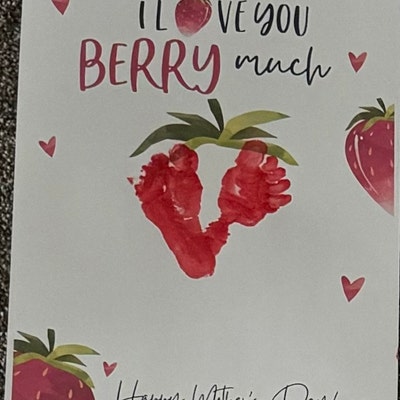 I LOVE YOU
BERRY much
Happy Mother's Day